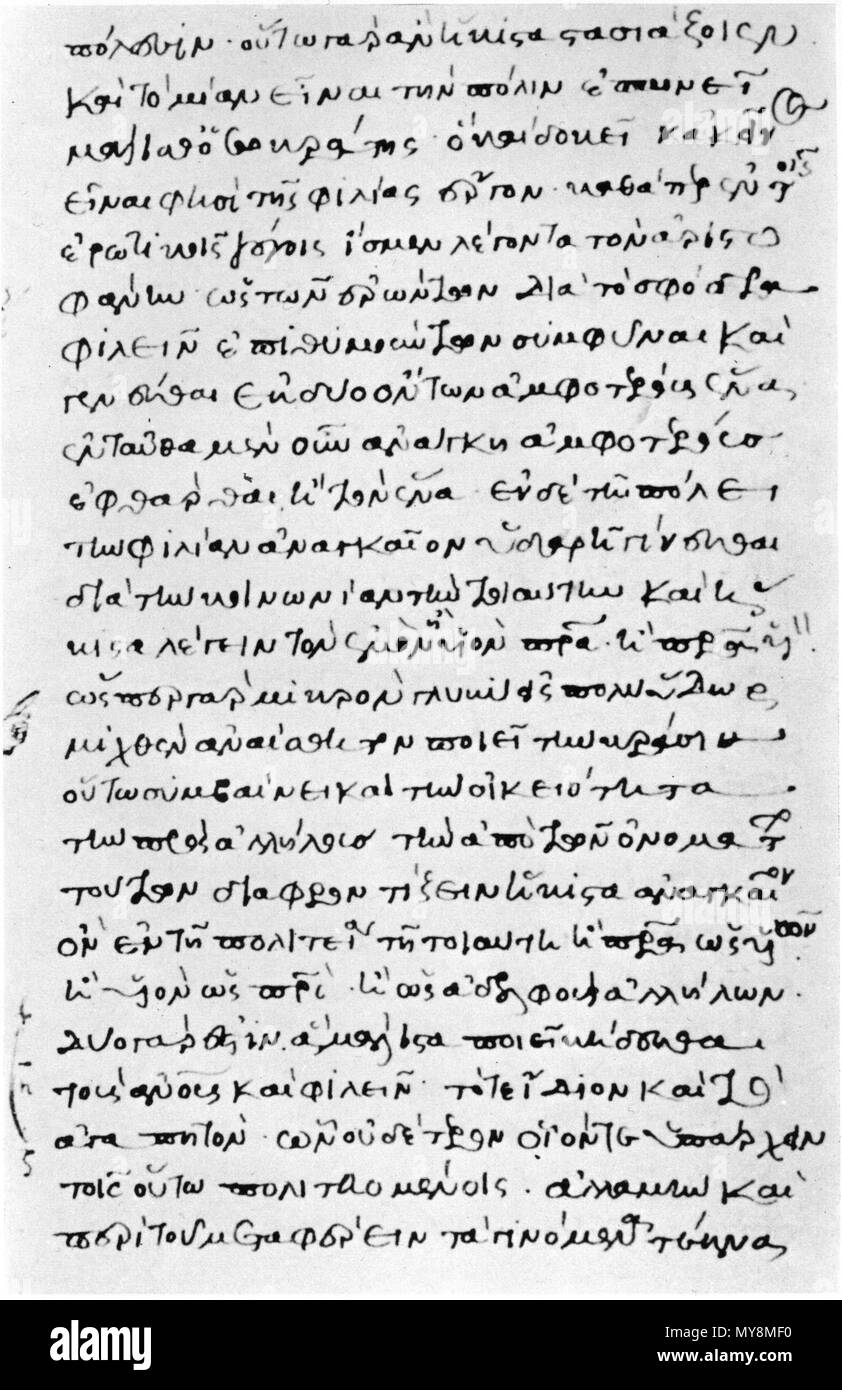 πόλεσιν · οὕτω γὰρ ἂν ἥκιστα στασιάζοιεν
καὶ τὸ μίαν εἶναι τὴν πόλιν ἐπαινεῖ
μάλισθ' ὁ σωκράτης · ὃ καὶ δοκεῖ
εἶναι φησὶ τῆς φιλίας ἔργον · καθάπερ ἐν τοῖς
ἐρωτικοῖς λόγοις ἴσμεν λέγοντα τὸν ἀριστο
φάνην ὡς τῶν ἐρώντων διὰ τὸ σφόδρα
φιλεῖν ἐπιθυμούντων συμφῦναι καὶ
γενέσθαι ἐκ δύο ὄντων ἀμφοτέρους ἕνα
ἐνταῦθα μὲν οὖν ἀνάγκη ἀμφοτέρους
ἐφθάρθαι ἢ τὸν ἕνα · ἐν δὲ τῇ πόλει
τὴν φιλίαν ἀναγκαῖον ὑδαρῆ γίνεσθαι
διὰ τὴν κοινωνίαν τὴν τοιαύτην καὶ ἥ
κιστα λέγειν τὸν ἐμὸν ἢ υἱὸν πατέρα · ἢ πατέρα υἱόν
ὥσπερ γὰρ μικρὸν γλυκὺ εἰς πολὺ ὕδωρ
μιχθὲν ἀναίσθητον ποιεῖ τὴν κρᾶσιν
οὕτω συμβαίνει καὶ τὴν οἰκειότητα
τὴν πρὸς ἀλλήλους τὴν ἀπὸ τῶν ὀνομάτων
τούτων διαφροντίζειν ἥκιστα ἀναγκαῖον
ὂν ἐν τῇ πολιτείᾳ τῇ τοιαύτῃ ἢ πατέρα ὡς υἱῶν
ἢ υἱὸν ὡς πατρός · ἢ ὡς ἀδελφοὺς ἀλλήλων ·
δύο γάρ ἐστιν ἃ μάλιστα ποιεῖ κήδεσθαι
τοὺς ἀνθρώπους καὶ φιλεῖν · τό τε ἴδιον καὶ τὸ
ἀγαπητόν · ὧν οὐδέτερον οἷόν τε ὑπάρχειν
τοῖς οὕτω πολιτευομένοις · ἀλλὰ μὴν καὶ
περὶ τοῦ μεταφέρειν τὰ γινόμενα τέκνα
alamy
Image ID: MY8MF0
www.alamy.com